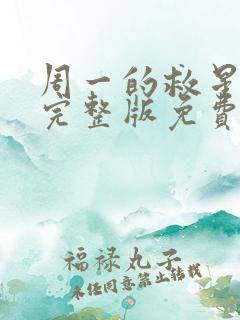 周一的救星
完整版免费
福禄丸子
未经同意禁止转载